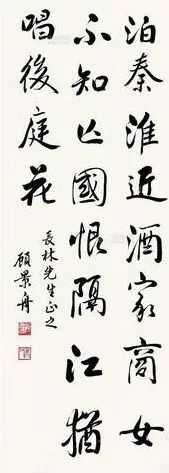 泊秦淮近酒家商女
不知亡國恨隔江猶
唱後庭花
長林先生正之
顧景舟